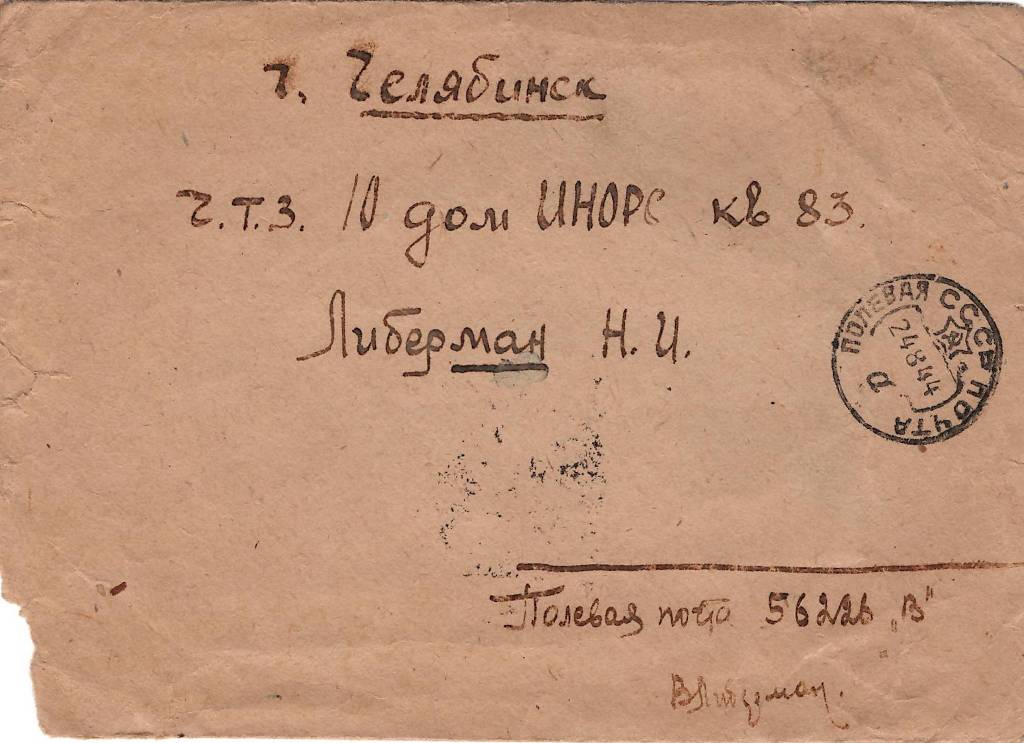 г. Челябинск
Ч.Т.З. 10 дом ИНОРС кв 83.
Либерман Н.И.
СССР ПОЛЕВАЯ ПОЧТА
24 8 44
Полевая почта 56228 „В“
ВЛиберман.